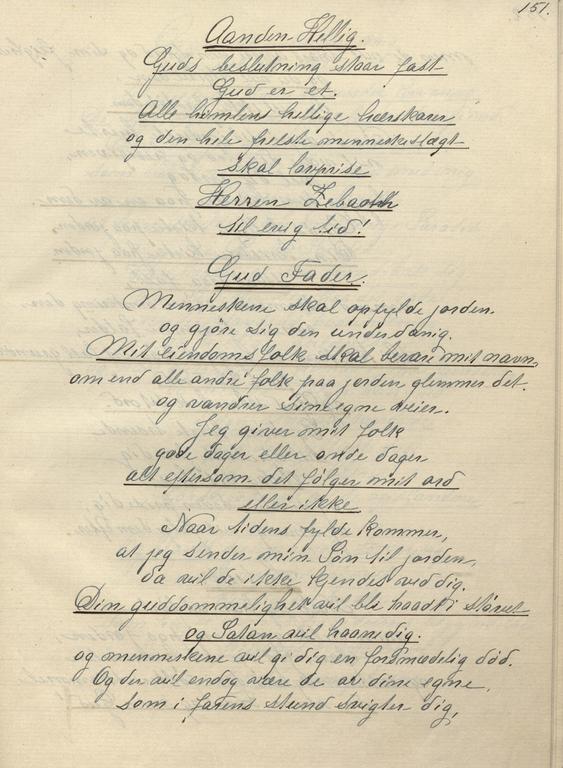 151.
Aanden Hellig.
Guds beslutning staar fast
Gud er et.
Alle himlens hellige hærskarer
og den hele frelste menneskeslægt
skal lovprise
Herren Zebaoth
til evig tid!
Gud Fader.
Menneskene skal opfylde jorden.
og gjöre sig den underdanig.
Mit eiendomsfolk skal bevare mit navn,
om end alle andre folk paa jorden glemmer det.
og vandrer sine egne veier.
Jeg giver mit folk
gode dager eller onde dager
alt eftersom det fölger mit ord
eller ikke
Naar tidens fylde kommer,
at jeg sender min Sön til jorden,
da vil de ikke kjendes ved dig.
Din guddommelighet vil bli traadt i stövet
og Satan vil haane dig.
og menneskene vil gi dig en forsmædelig död.
Og der vil endog være de av dine egne,
som i farens stund svigter dig,